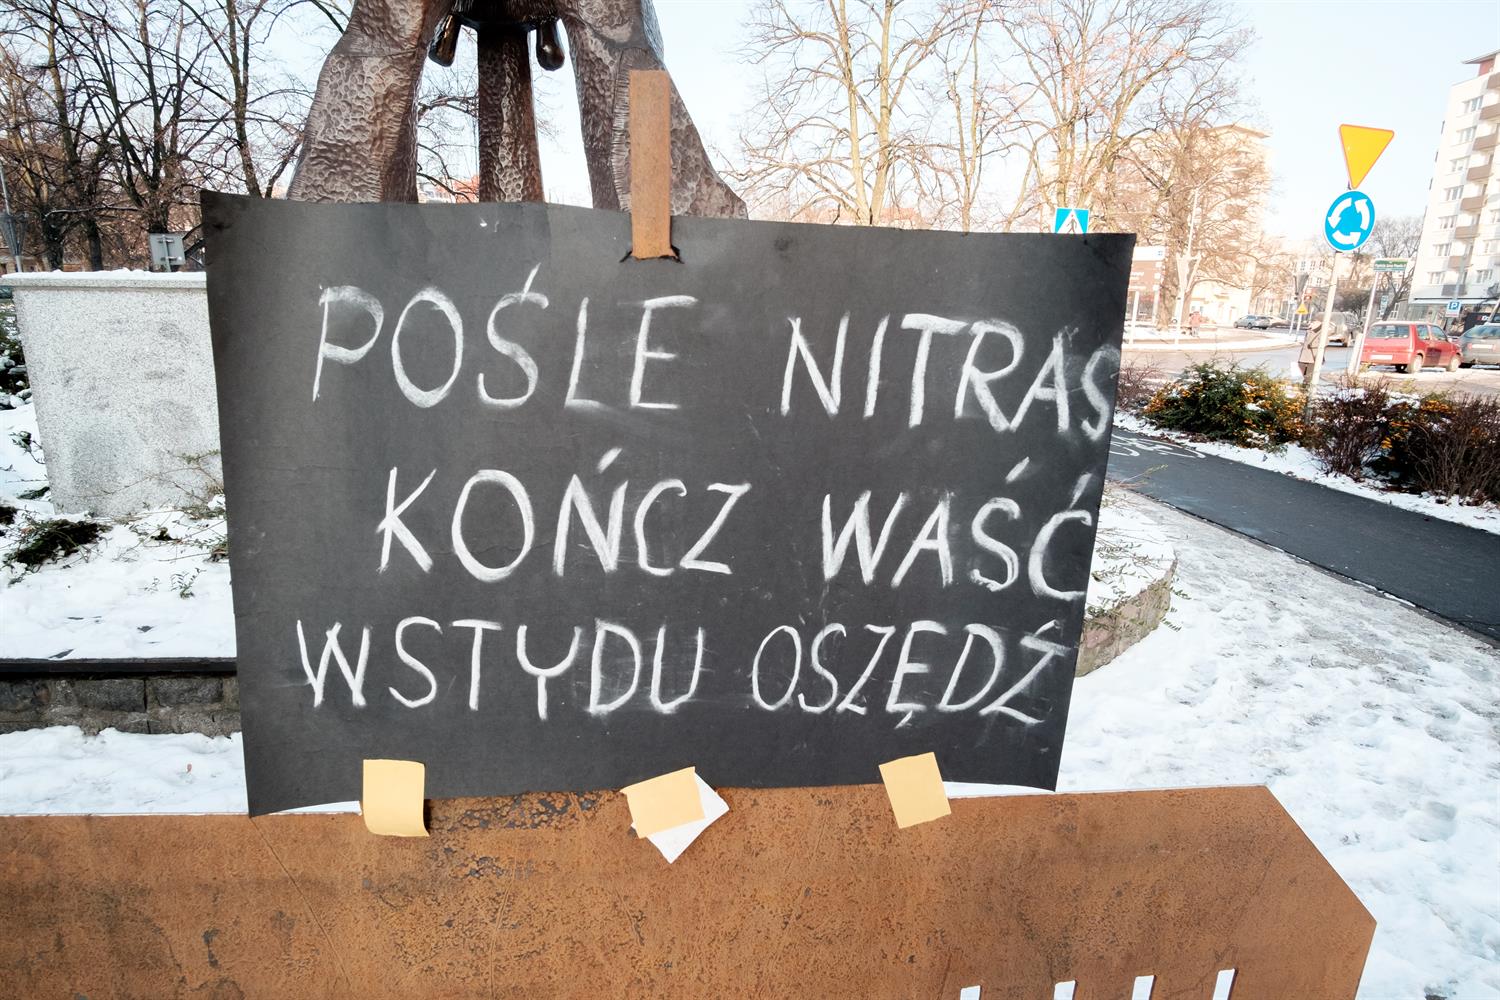 POŚLE NITRAS
KOŃCZ WAŚĆ
WSTYDU OSZĘDŹ